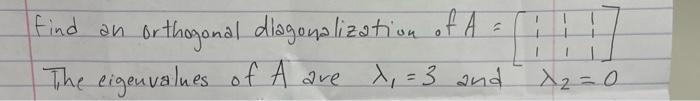 Find an orthogonal diagonalization of A = [1 1 1
1 1 1
1 1 1]
The eigenvalues of A are λ₁ = 3 and λ₂ = 0